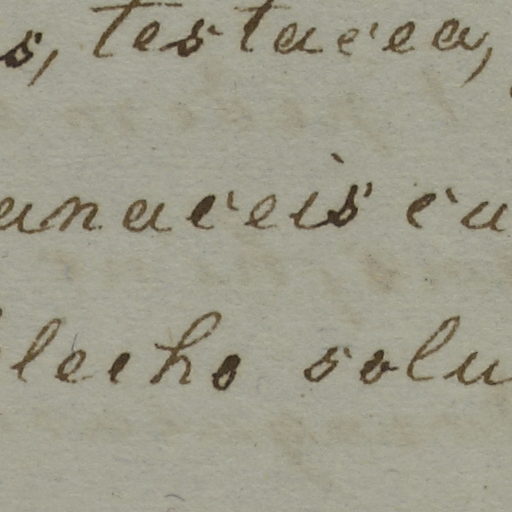 s, testacea,
anaceis cu
lecho solu